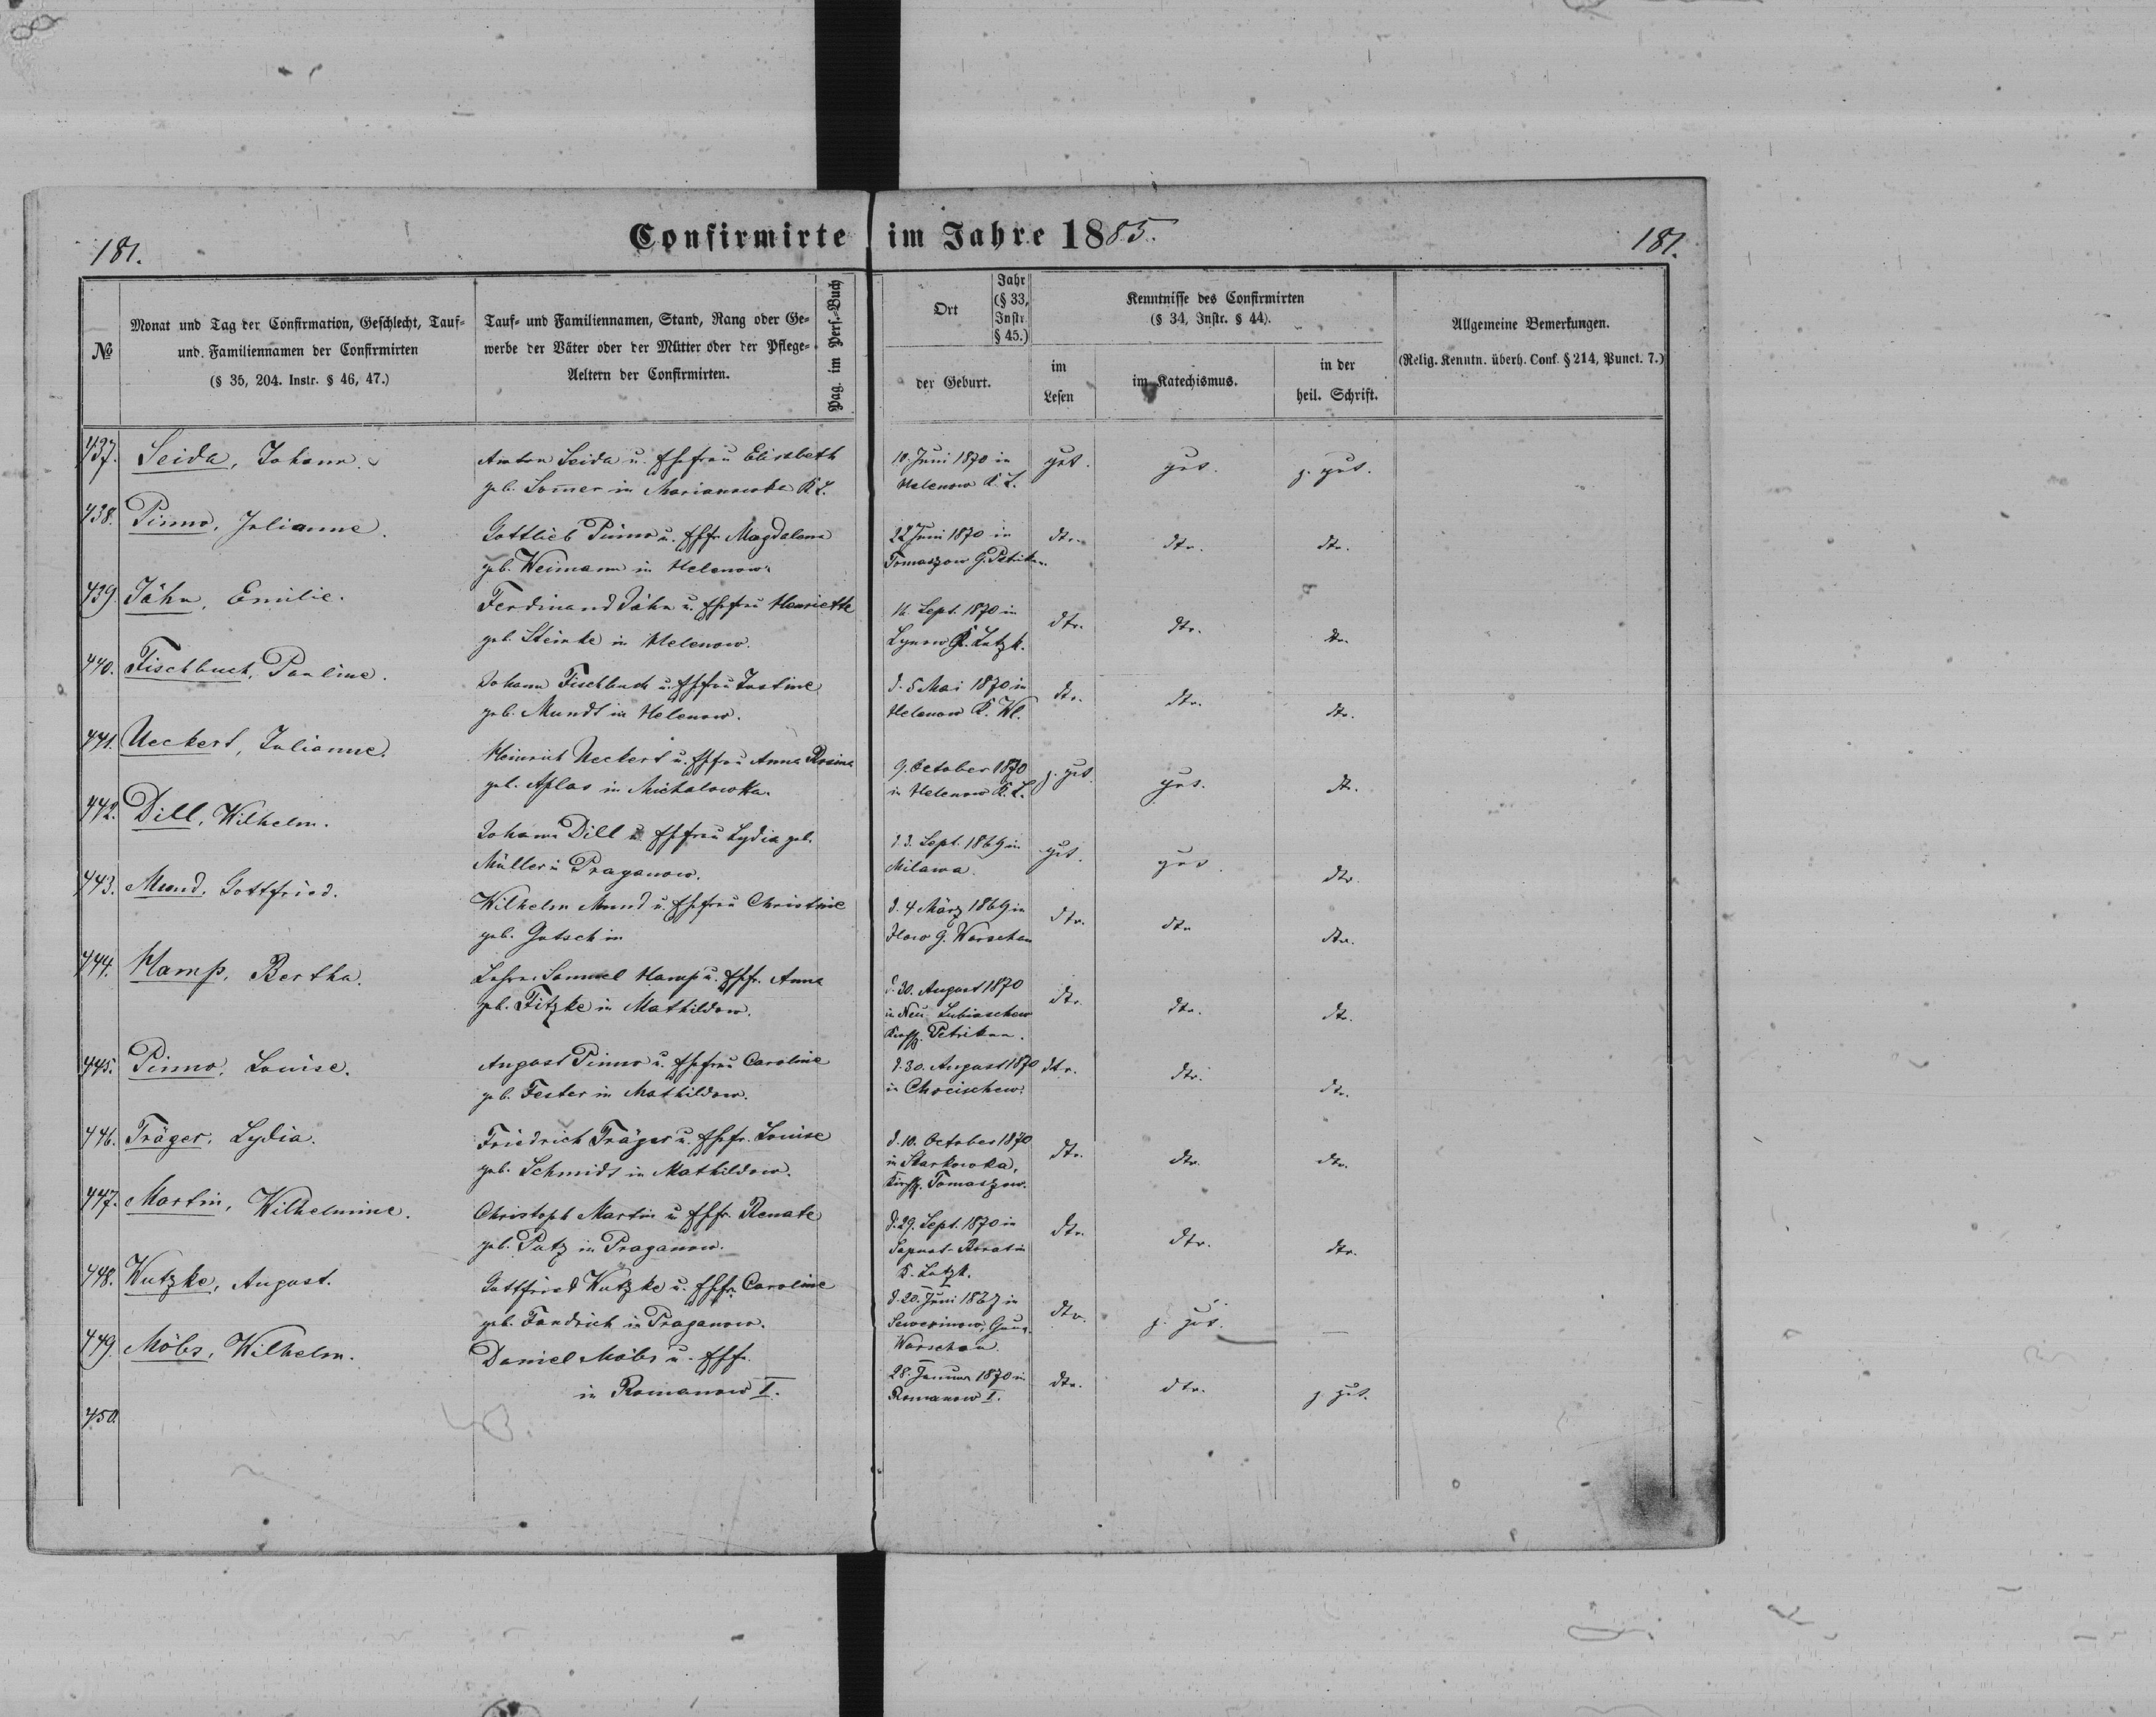 181.
Confirmirte im Jahre 1885.
181.
№
Monat und Tag der Confirmation, Geschlecht, Tauf-
und Familiennamen der Confirmirten
(§ 35, 204. Instr. § 46, 47.)
Tauf- und Familiennamen, Stand, Rang oder Ge-
werbe der Väter oder der Mütter oder der Pflege-
Aeltern der Confirmirten.
Pag. im Pers.-Buch
Ort
Jahr
(§ 33,
Instr.
§ 45.)
der Geburt.
Kenntnisse des Confirmirten
(§ 34, Instr. § 44).
im
Lesen
im Katechismus.
in der
heil. Schrift.
Allgemeine Bemerkungen.
(Relig. Kenntn. überh. Conf. § 214, Punct. 7.)
437. Seida, Johann.
Anton Seida u. Ehefrau Elisabeth
geb. Sommer in Marianowka K. L.
10. Juni 1870 in
Helenow K. L.
gut. gut. z. gut.
438. Pinno, Julianne.
Gottlieb Pinno u. Ehfr. Magdalena
geb. Weimann in Helenow.
22 Juni 1870 in
Tomaszow G. Petrikau.
dto. dto. dto.
439. Jähn, Emilie.
Ferdinand Jähn u. Ehefrau Henriette
geb. Steinke in Helenow.
Sept. 1870 in
K. Lutzk.
dto. dto. dto.
440. Fischbuch, Pauline.
Johann Fischbuch u. Ehefrau Justine
geb. Mundt in Helenow.
d. 5 Mai 1870 in
Helenow K. Wl.
dto. dto. dto.
441. Ueckert, Julianne.
Heinrich Ueckert u. Ehefrau Anna Rosina
geb. in Michalowka.
9. October 1870
in Helenow K. L.
z. gut. gut. dto.
442. Dill, Wilhelm.
Johann Dill u. Ehefrau Lydia geb.
Müller in Praganow.
13. Sept. 1869 in
Milawa.
gut. gut. dto.
443. Mund, Gottfried.
Wilhelm Mund u. Ehefrau Christine
geb. Gutsch in
d. 4 März 1869 in
Ilow G. Warschau
dto. dto. dto.
444. Hamp, Bertha.
Lehrer Samuel Hamp u. Ehfr. Anna
geb. Fitzke in Mathildow.
d. 30. August 1870
in Neu-Lubiaschow
Kirchsp. Petrikau.
dto. dto. dto.
445. Pinno, Louise.
August Pinno u. Ehefrau Caroline
geb. Fester in Mathildow.
d. 30. August 1870
in Chocischew.
dto. dto. dto.
446. Träger, Lydia.
Friedrich Träger u. Ehefr. Louise
geb. Schmidt in Mathildow.
d. 10. October 1870
in Starkowka,
Kirchsp. Tomaszow.
dto. dto. dto.
447. Martin, Wilhelmine.
Christoph Martin u. Ehfr. Renate
geb. Putz in Praganow.
d. 29. Sept. 1870 in
K. Lutzk.
dto. dto. dto.
448. Wutzke, August.
Gottfried Wutzke u. Ehfr. Caroline
geb. Fandrich in Praganow.
d. 20. Juni 1867 in
Sewerinow, Gouv.
Warschau.
dto. z. gut. —
449. Möbs, Wilhelm.
Daniel Möbs u. Ehfr.
in Romanow I.
28. Januar 1870 in
Romanow I.
dto. dto. z. gut.
450.